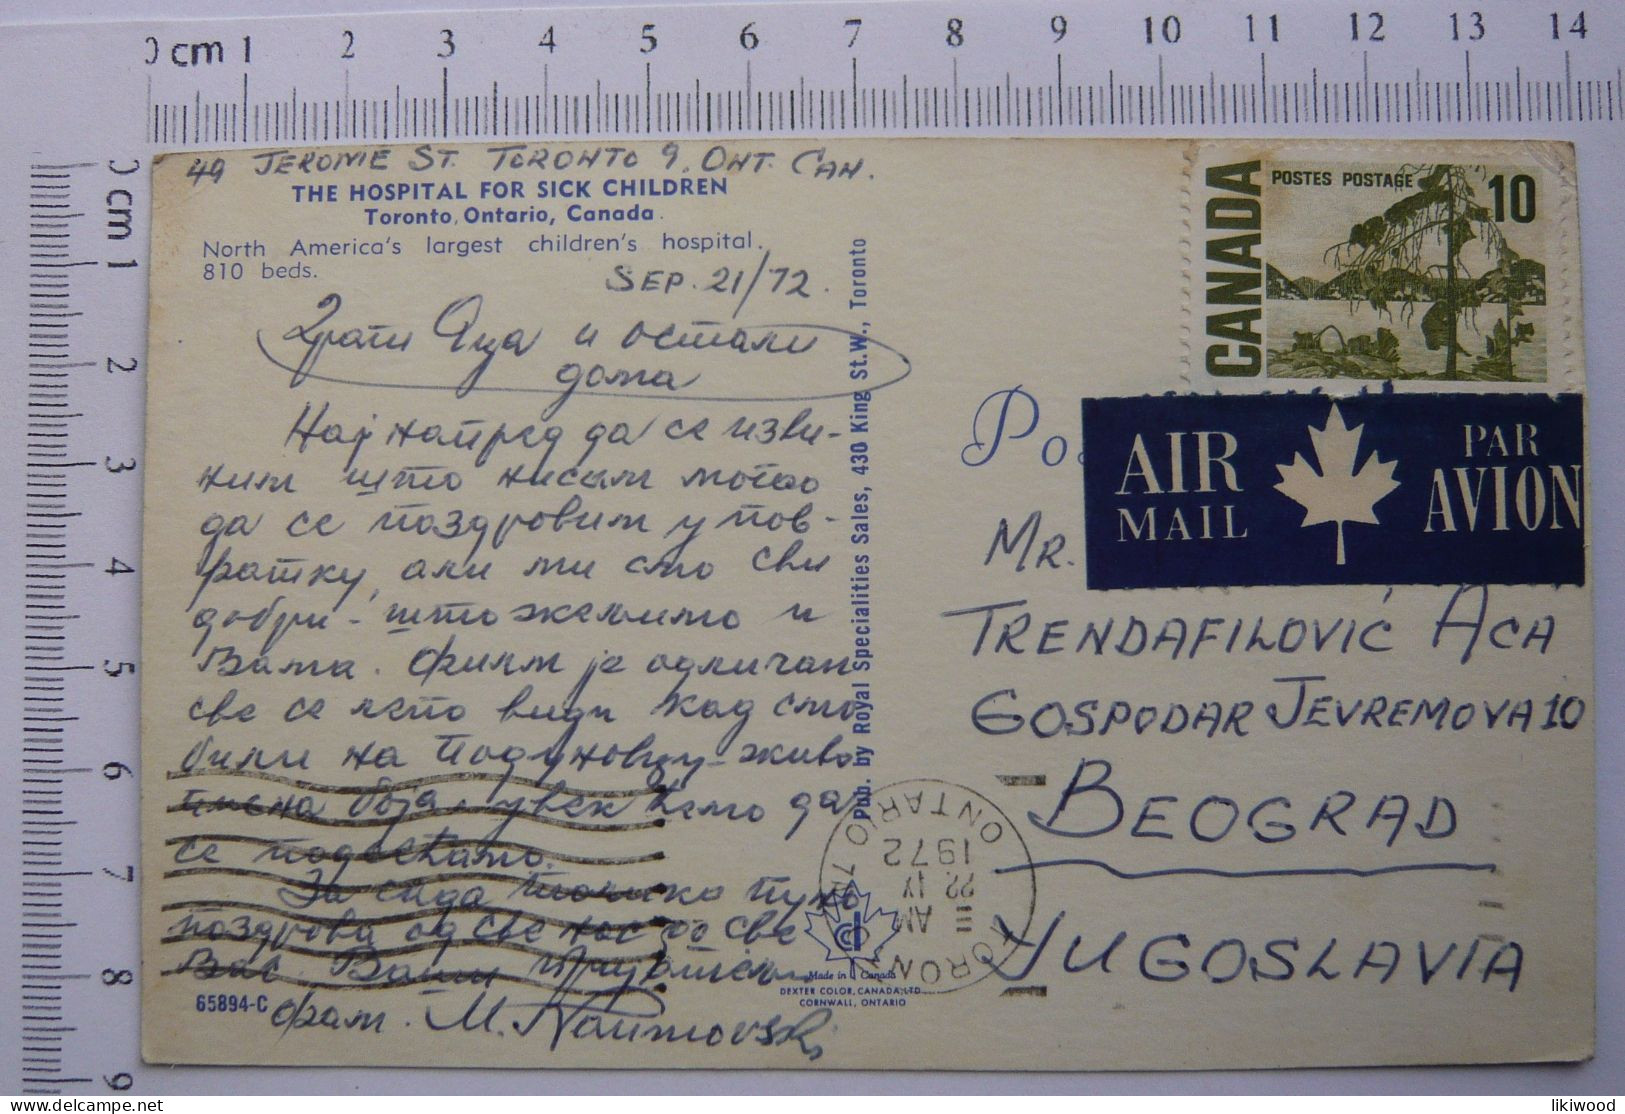 0 cm 1 2 3 4 5 6 7 8 9 10 11 12 13 14
0 cm 1 2 3 4 5 6 7 8 9
49 JEROME ST. TORONTO 9. ONT. CAN.
THE HOSPITAL FOR SICK CHILDREN
Toronto, Ontario, Canada.
North America's largest children's hospital.
810 beds.
SEP. 21/72.
Драги Аца и остали
дома
Нај напред да се изви-
ним што нисам могао
да се поздровим у пов-
ратку, али ми смо сви
добри - што желимо и
Вама. Филм је одличан
све се лепо види кад смо
били на Подуновцу - живо
писна боја - увек ћемо да
се подсећамо.
За сада толико пуно
поздрова од све нас за све
Вас. Ваши пријатељи
фам. M. Naumovski
65894-C
Pub. by Royal Specialities Sales, 430 King St. W., Toronto
Made in Canada
DEXTER COLOR, CANADA, LTD
CORNWALL, ONTARIO
CANADA
POSTES POSTAGE
10
Po
AIR
MAIL
PAR
AVION
MR.
TRENDAFILOVIĆ ACA
GOSPODAR JEVREMOVA 10
BEOGRAD
YUGOSLAVIA
TORON
ONTARIO
AM
22 IX
1972
likiwood